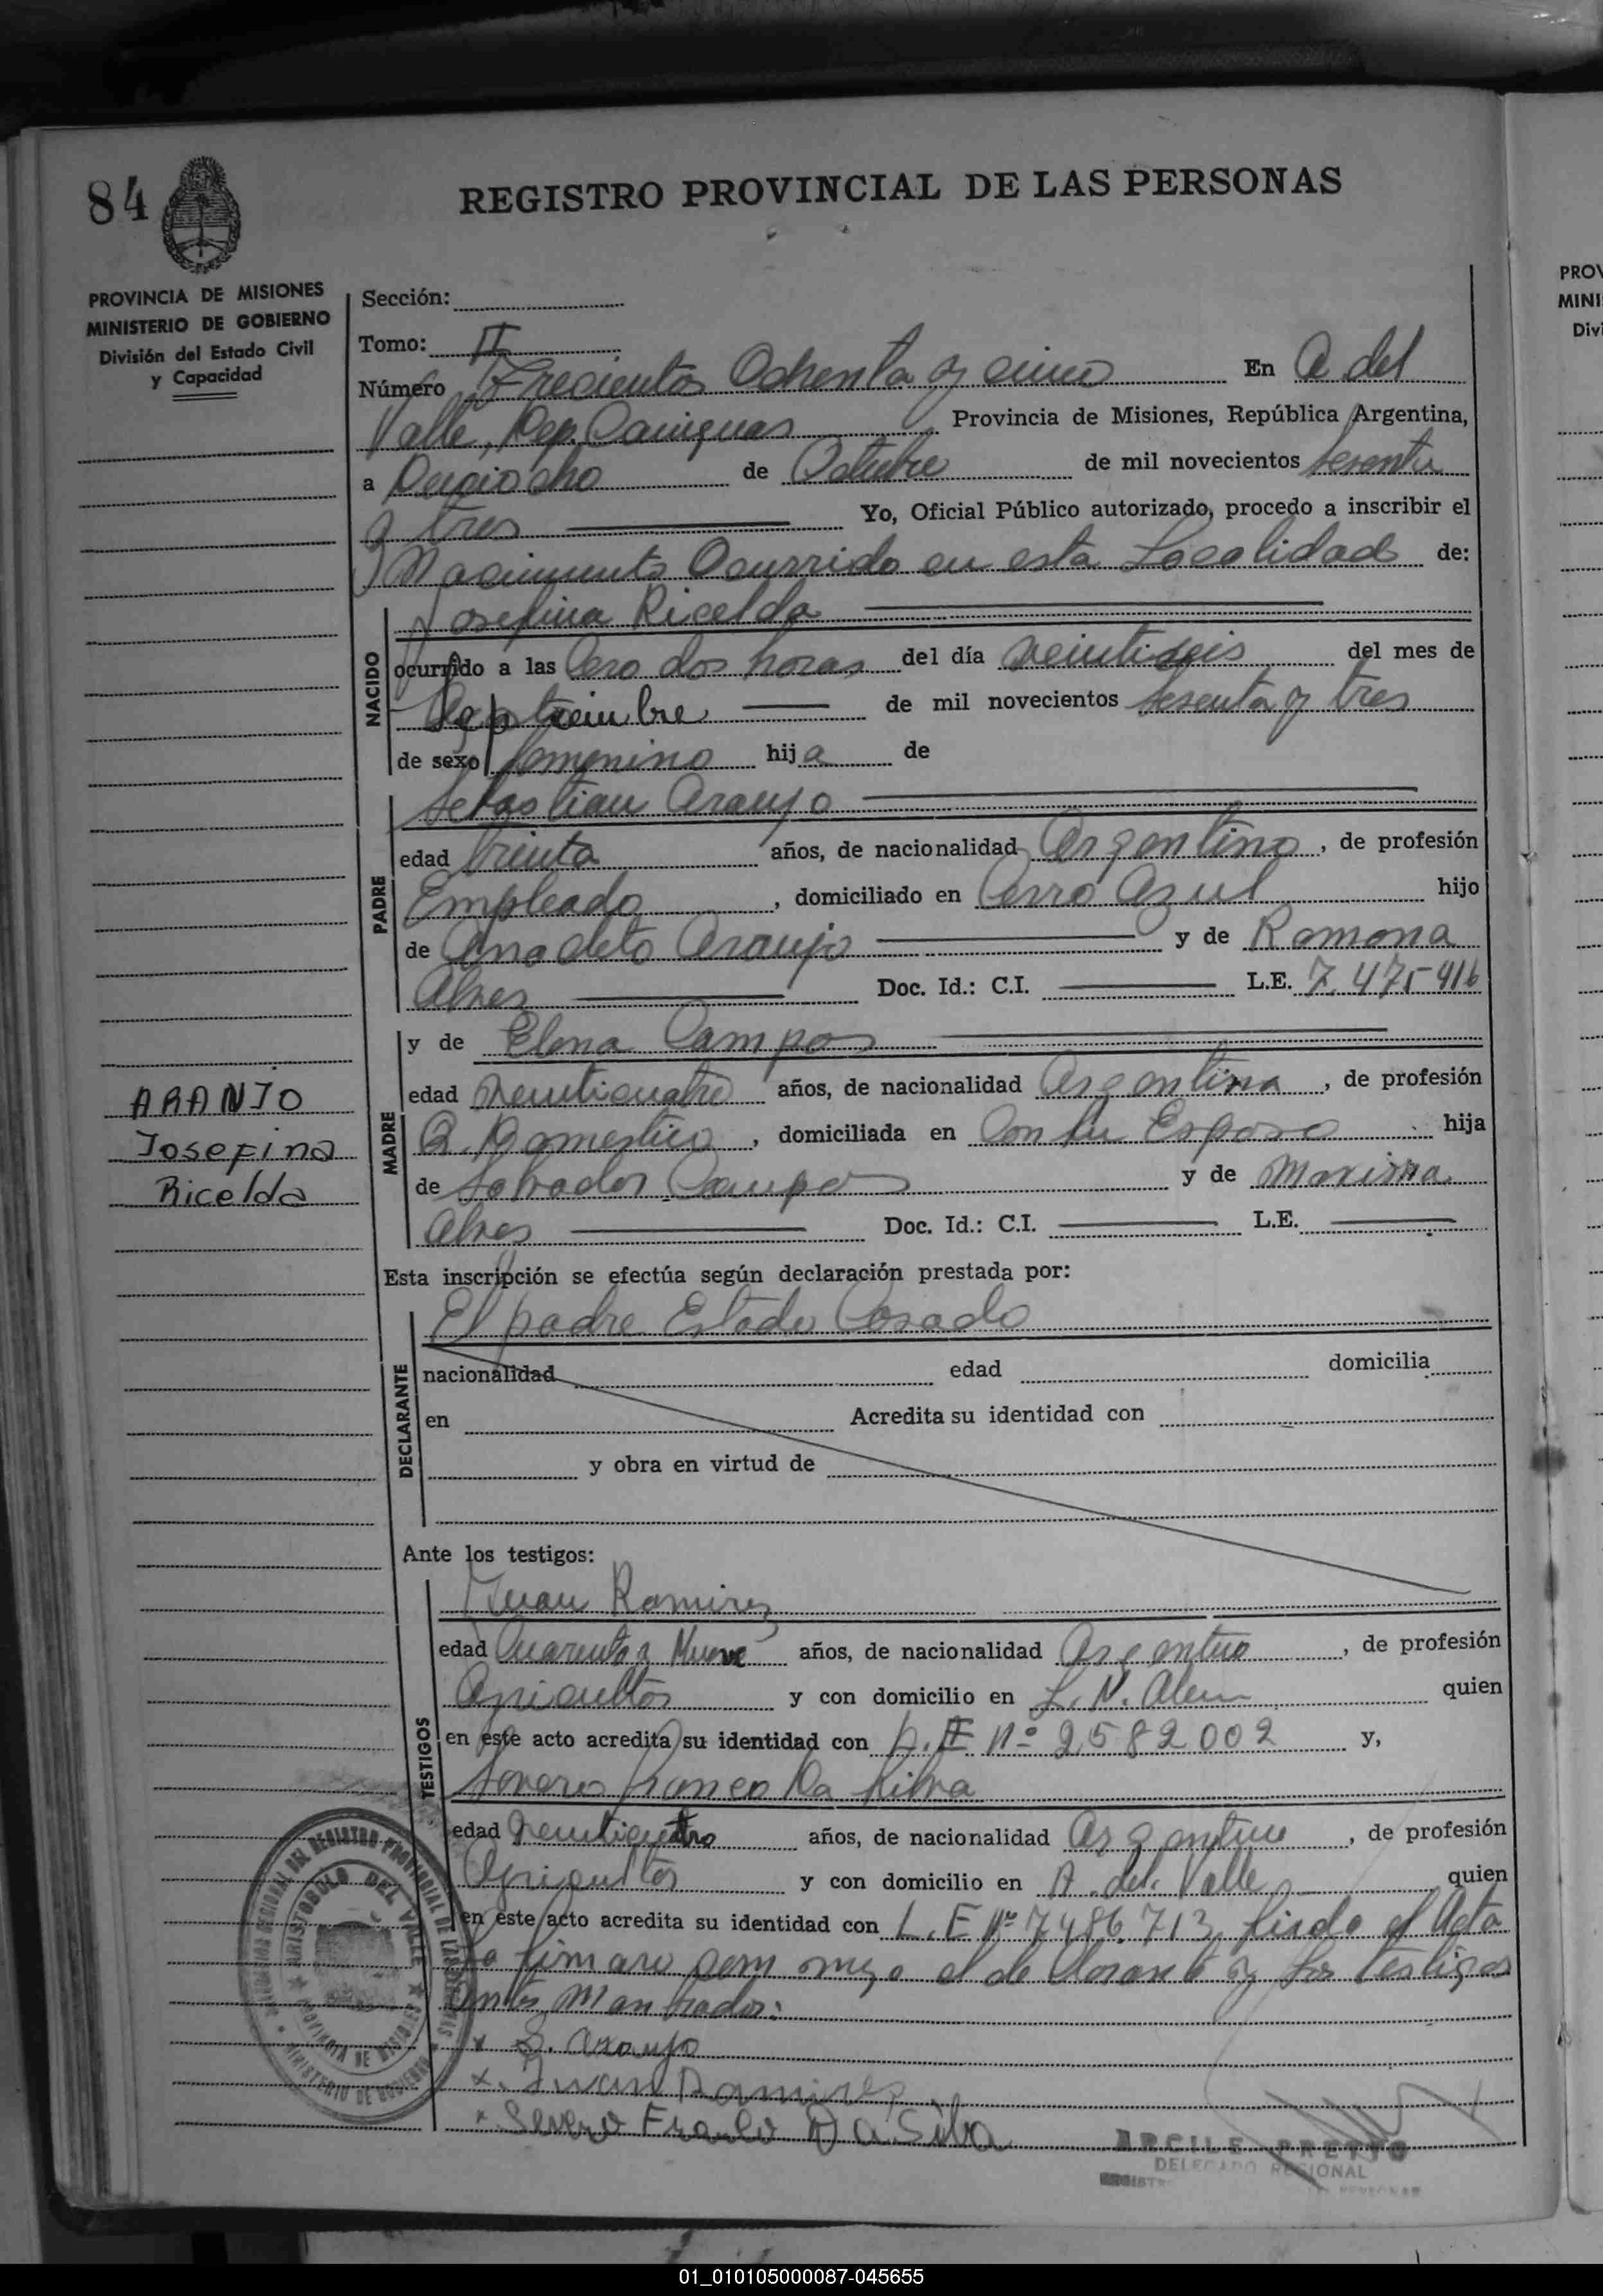 84
REGISTRO PROVINCIAL DE LAS PERSONAS
PROVINCIA DE MISIONES
MINISTERIO DE GOBIERNO
División del Estado Civil
y Capacidad
Sección:
Tomo: II
Número Trecientos Ochenta y cinco En A del
Valle, Dep. Cainguas Provincia de Misiones, República Argentina,
a Deciocho de Octubre de mil novecientos sesenta
y tres Yo, Oficial Público autorizado, procedo a inscribir el
Nacimiento Ocurrido en esta Localidad de:
NACIDO
Josefina Ricelda
ocurrido a las Cero dos horas del día veintiseis del mes de
Septiembre de mil novecientos sesenta y tres
de sexo femenino hija de
PADRE
Sebastian Araujo
edad treinta años, de nacionalidad Argentino, de profesión
Empleado, domiciliado en Cerro Azul hijo
de Anacleto Araujo y de Ramona
Alves Doc. Id.: C.I. L.E. 7.475-416
MADRE
y de Elena Campos
edad veinticuatro años, de nacionalidad Argentina, de profesión
Q. Domestico, domiciliada en Con su Esposo hija
de Salvador Campos y de Maxima
Alves Doc. Id.: C.I. L.E.
ARANJO
Josefina
Ricelda
Esta inscripción se efectúa según declaración prestada por:
DECLARANTE
El padre Estado Casado
nacionalidad edad domicilia
en Acredita su identidad con
y obra en virtud de
Ante los testigos:
TESTIGOS
Juan Ramirez
edad Cuarenta y Nueve años, de nacionalidad Argentino, de profesión
Agricultor y con domicilio en L. N. Alem quien
en este acto acredita su identidad con L. E Nº 2582002 y,
Severo Franco Da Silva
edad veinticuatro años, de nacionalidad Argentino, de profesión
Agricultor y con domicilio en A. del Valle quien
en este acto acredita su identidad con L. E Nº 7486.713, el Acta
y los testigos
S. Araujo
Juan Ramirez
Severo Franco Da Silva
ARISTOBULO DEL VALLE
PROVINCIA DE MISIONES
MINISTERIO DE GOBIERNO
ARCILE PRETTO
DELEGADO REGIONAL
01_010105000087-045655